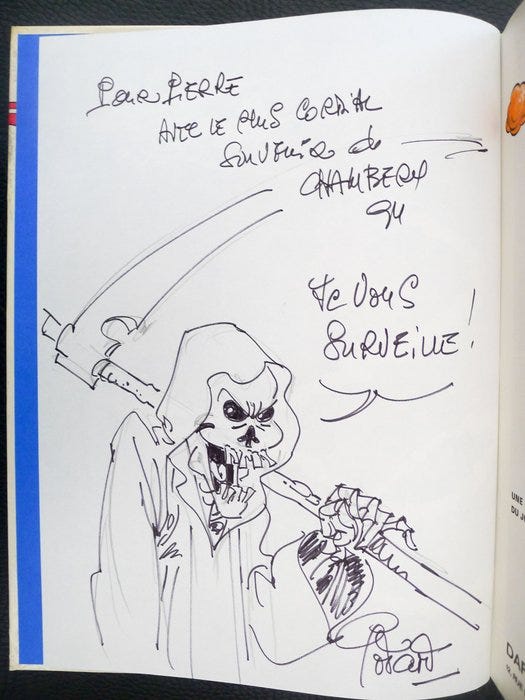 Pour PIERRE
AVEC LE PLUS CORDIAL
SOUVENIR de
CHAMBERY
94
Je VOUS
SURVEILLE!
UNE
DU J
DAR